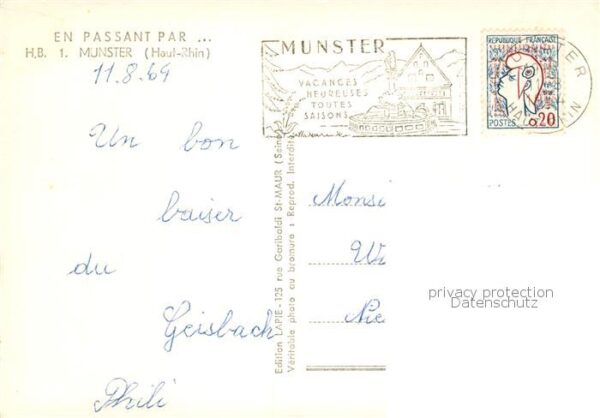 EN PASSANT PAR ...
H.B. 1. MUNSTER (Haut-Rhin)
11.8.69
Un bon
baiser
du
Geisbach
Phili
MUNSTER
VACANCES
HEUREUSES
TOUTES
SAISONS
REPUBLIQUE FRANÇAISE
POSTES 0,20
Edition LAPIE - 125 rue Garibaldi St-MAUR (Seine)
Véritable photo au bromure : Reprod. Interdite
Monsi
Wi
Nie
privacy protection
Datenschutz